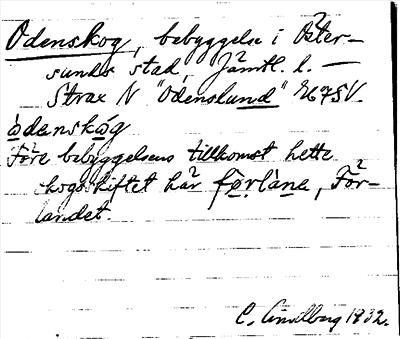 Odenskog, bebyggelse i Öster-
sunds stad, Jämtl. l. —
Strax N "Odenslund" 
òdenskóg
Före bebyggelsens tillkomst hette
skogsskiftet här førlàne, För-
landet.
C. Lindberg 1932.